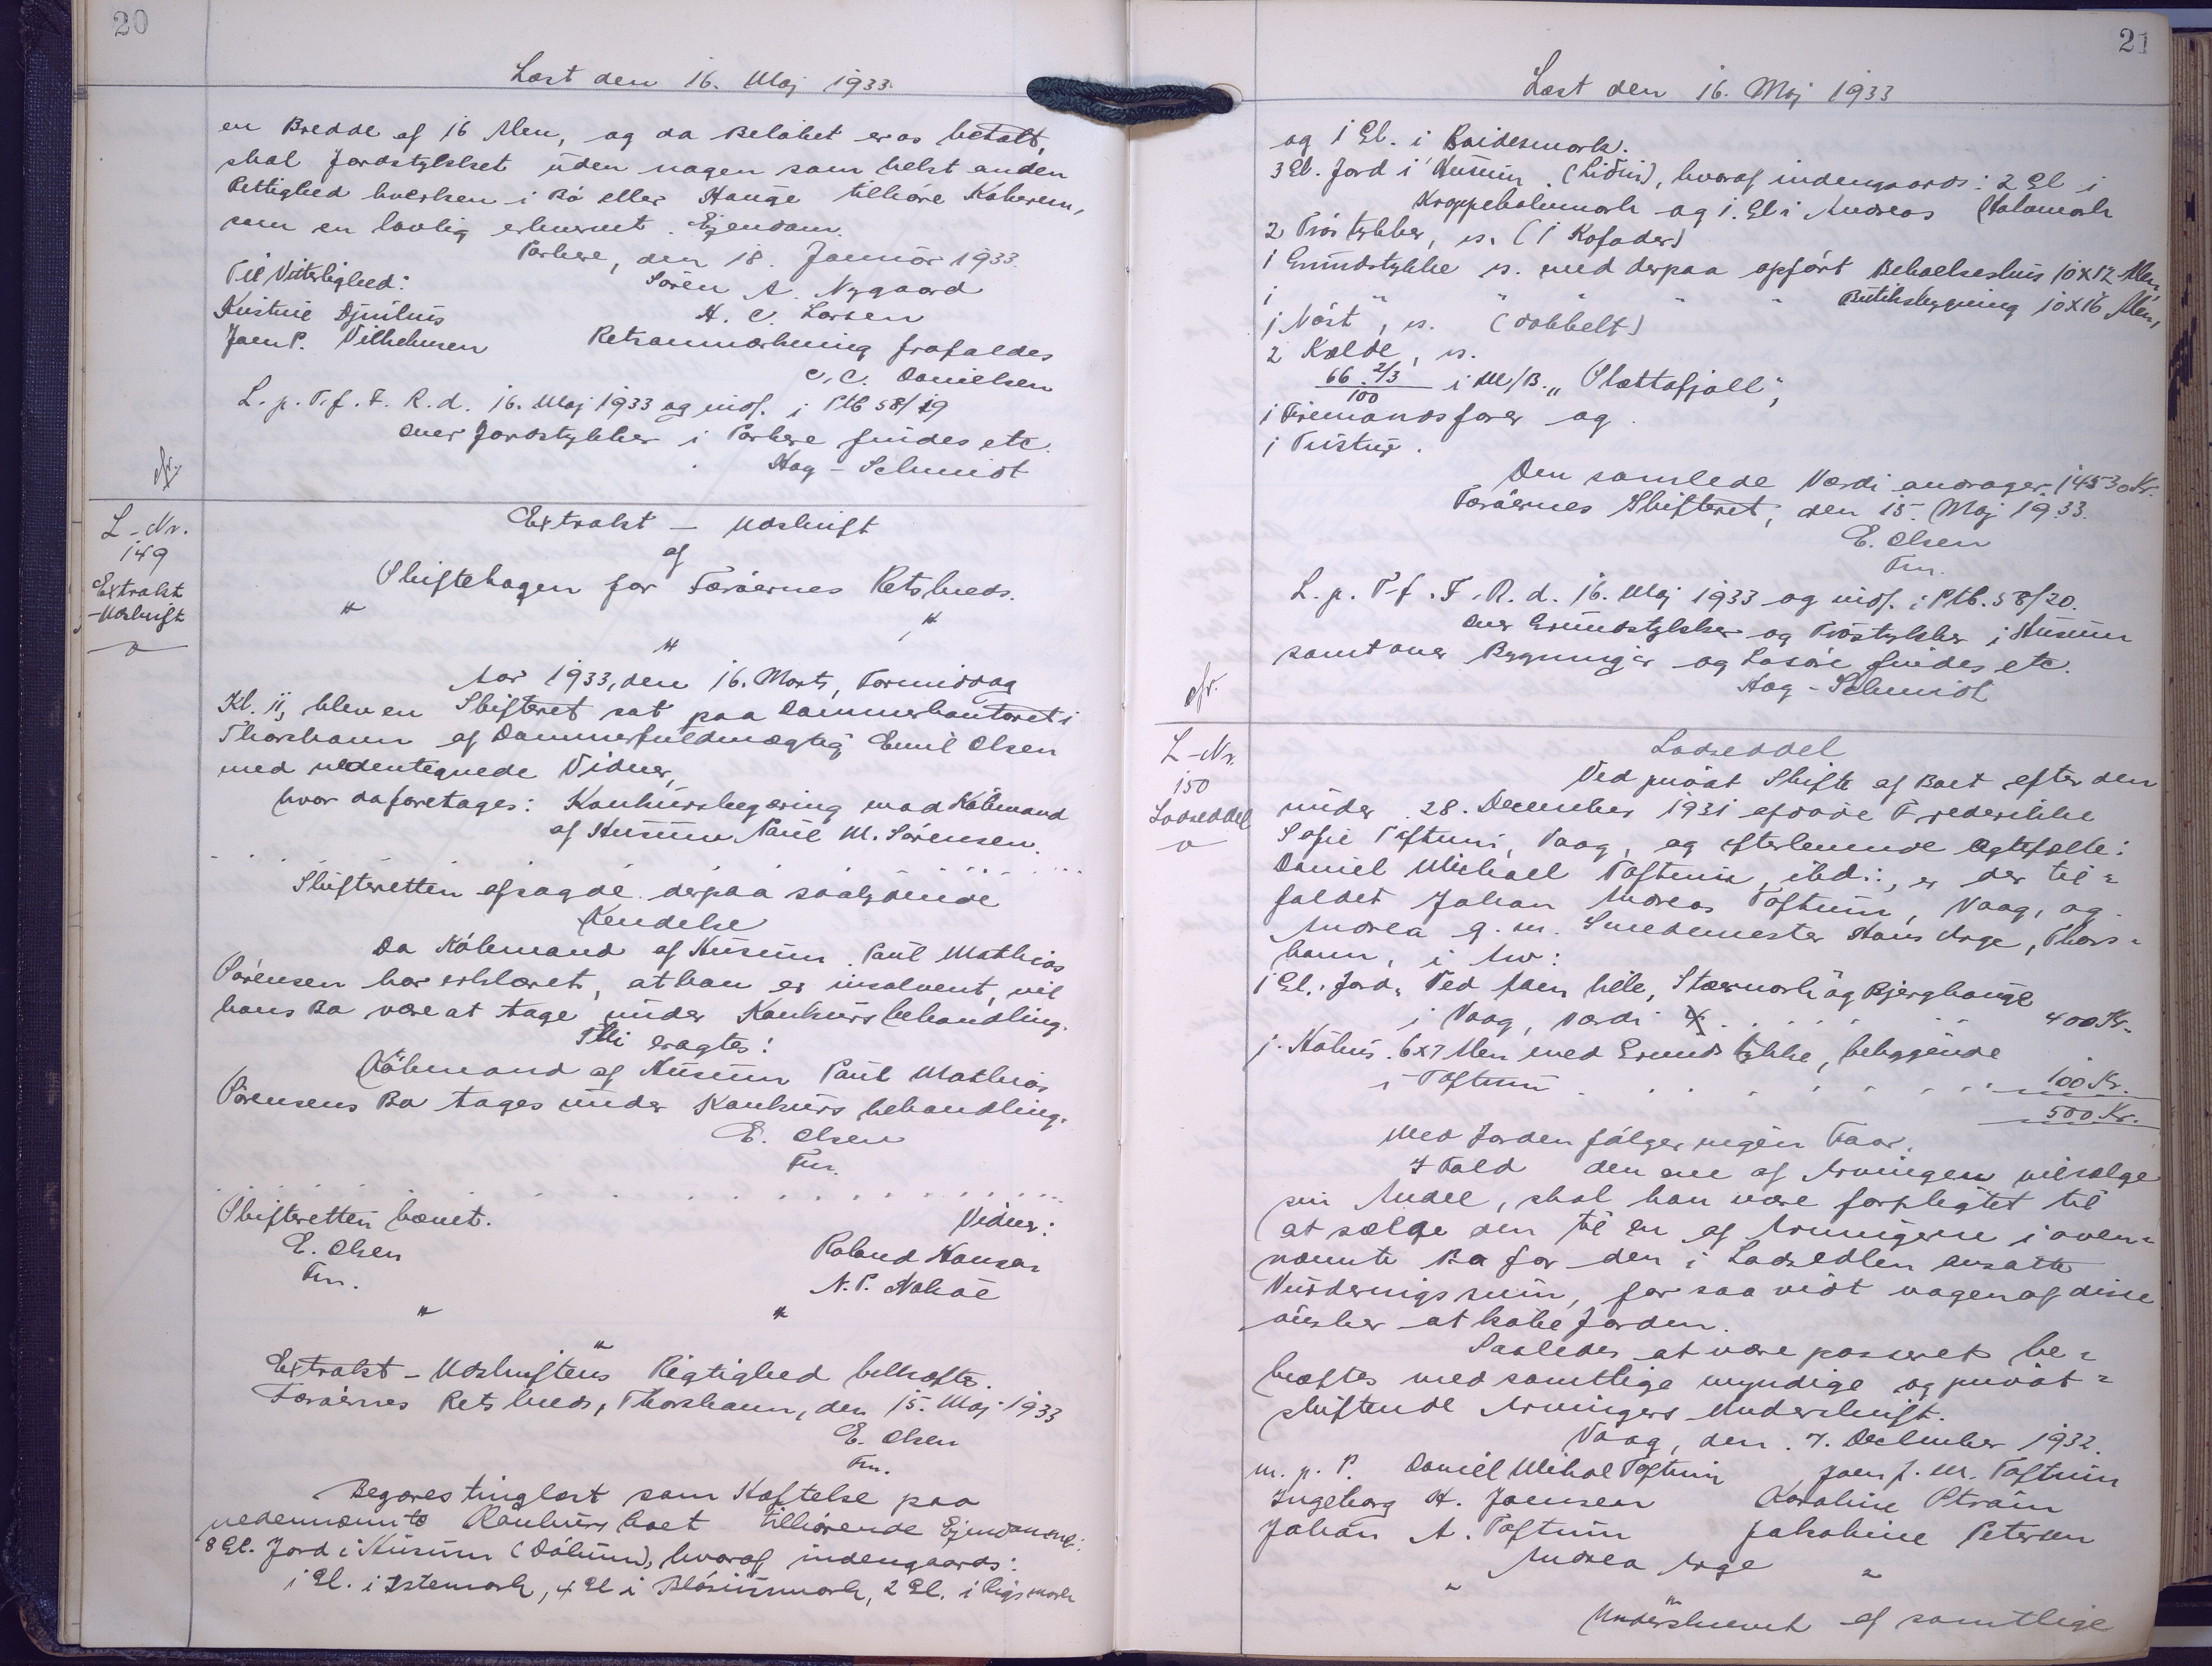 20
Læst den 16. Maj 1933.
en Bredde af 16 Alen, og da Beløbet er os betalt,
skal Jordstykket uden nogen som helst anden
Rettighed hverken i Bø eller Hauge tilhøre Køberen,
som en lovlig erhvervet Ejendom.
Porkere, den 18. Januar 1933.
Til Vitterlighed:
Søren A. Nygaard
Kristine Djurhuus
H. C. Larsen
Joen P. Vilhelmsen
Retsanmærkning frafaldes
C. C. Danielsen
L. p. T. f. F. R. d. 16. Maj 1933 og indf. i Ptb 58/19
Over Jordstykker i Porkere findes etc.
Hag-Schmidt
cfr.
L-Nr.
149
Extrakt
-Udskrift
Extrakt - Udskrift
af
Skiftebogen for Færøernes Retskreds.
" "
"
Aar 1933, den 16. Marts, Formiddag
Kl. 11, blev en Skifteret sat paa Dommerkontoret i
Thorshavn af Dommerfuldmægtig Emil Olsen
med undertegnede Vidner,
hvor da foretages: Konkursbegæring mod Købmand
af Husum Paul M. Sørensen.
Skifteretten afsagde derpaa saalydende
Kendelse
Da Købmand af Husum Paul Mathias
Sørensen har erklæret, at han er insolvent, vil
hans Bo være at tage under Konkursbehandling.
Thi eragtes:
Købmand af Husum Paul Mathias
Sørensens Bo tages under Konkursbehandling.
E. Olsen
Fm.
Skifteretten hævet.
Vidner:
E. Olsen
Roland Hansen
Fm.
N. P. Nolsøe
" "
"
Extrakt-Udskriftens Rigtighed bekræftes.
Færøernes Retskreds, Thorshavn, den 15. Maj 1933
E. Olsen
Fm.
Begæres tinglæst som Hæftelse paa
nedennævnte Konkursboet tilhørende Ejendomme:
8 Gl. Jord i Husum (Dølum), hvoraf indengaards:
1 Gl. i Istemork, 4 Gl. i Blásinsmork, 2 Gl. i Rigsmork
21
Læst den 16. Maj 1933
og 1 Gl. i Boidesmork.
3 Gl. Jord i Husum (Liðin), hvoraf indengaards: 2 Gl i
Kroppeholumork og 1. Gl i Andreas Holamork
2 Tróstykker, is. (1 Kofoder)
1 Grundstykke is. med derpaa opført Beboelseshus 10x12 Alen
1 " " " " " Butiksbygning 10x16 Alen,
1 Nøst, is. (dobbelt)
2 Kælde, is.
66.2/3
100
i M/B. "Slættafjall",
1 Firemandsfarer og
1 Tristur.
Den samlede Værdi andrager 14530 Kr.
Færøernes Skifteret, den 15. Maj 1933.
E. Olsen
Fm.
L. p. T. f. F. R. d. 16. Maj 1933 og indf. i Ptb. 58/20.
Over Grundstykker og Tróstykker i Husum
samt over Bygninger og Løsøre findes etc.
Hag-Schmidt
cfr.
L-Nr.
150
Lodseddel
Lodseddel
Ved privat Skifte af Boet efter den
under 28. December 1931 afdøde Frederikke
Sofie Toftum, Vaag, og efterlevende Ægtefælle:
Daniel Michael Toftum, ibd:, er der til=
faldet Johan Andreas Toftum, Vaag, og
Andrea g. m. Smedemester Hans Arge, Thors=
havn, i Arv:
1 Gl. Jord, Ved Aaen lille, Stærmork og Bjerghauge
i Vaag, værdi
400 Kr.
1. Köhus. 6x7 Alen med Grundstykke, beliggende
i Toftum
100 Kr.
500 Kr.
Med Jorden følger ingen Faar.
I Fald den ene af Arvingen vil sælge
sin Andel, skal han være forpligtet til
at sælge den til en af Arvingerne i oven=
nævnte Bo for den i Lodsedlen ansatte
Vurderingssum, for saa vidt nogen af disse
ønsker at købe Jorden.
Saaledes at være passeret be=
kræftes med samtlige myndige og privat=
skiftende Arvingers Underskrift.
Vaag, den 7. December 1932.
m. p. P. Daniel Mikal Toftum
Joen J. M. Toftum
Ingeborg H. Joensen
Karoline Strøm
Johan A. Toftum
Jakobine Petersen
Andrea Arge
" "
"
Underskrevet af samtlige